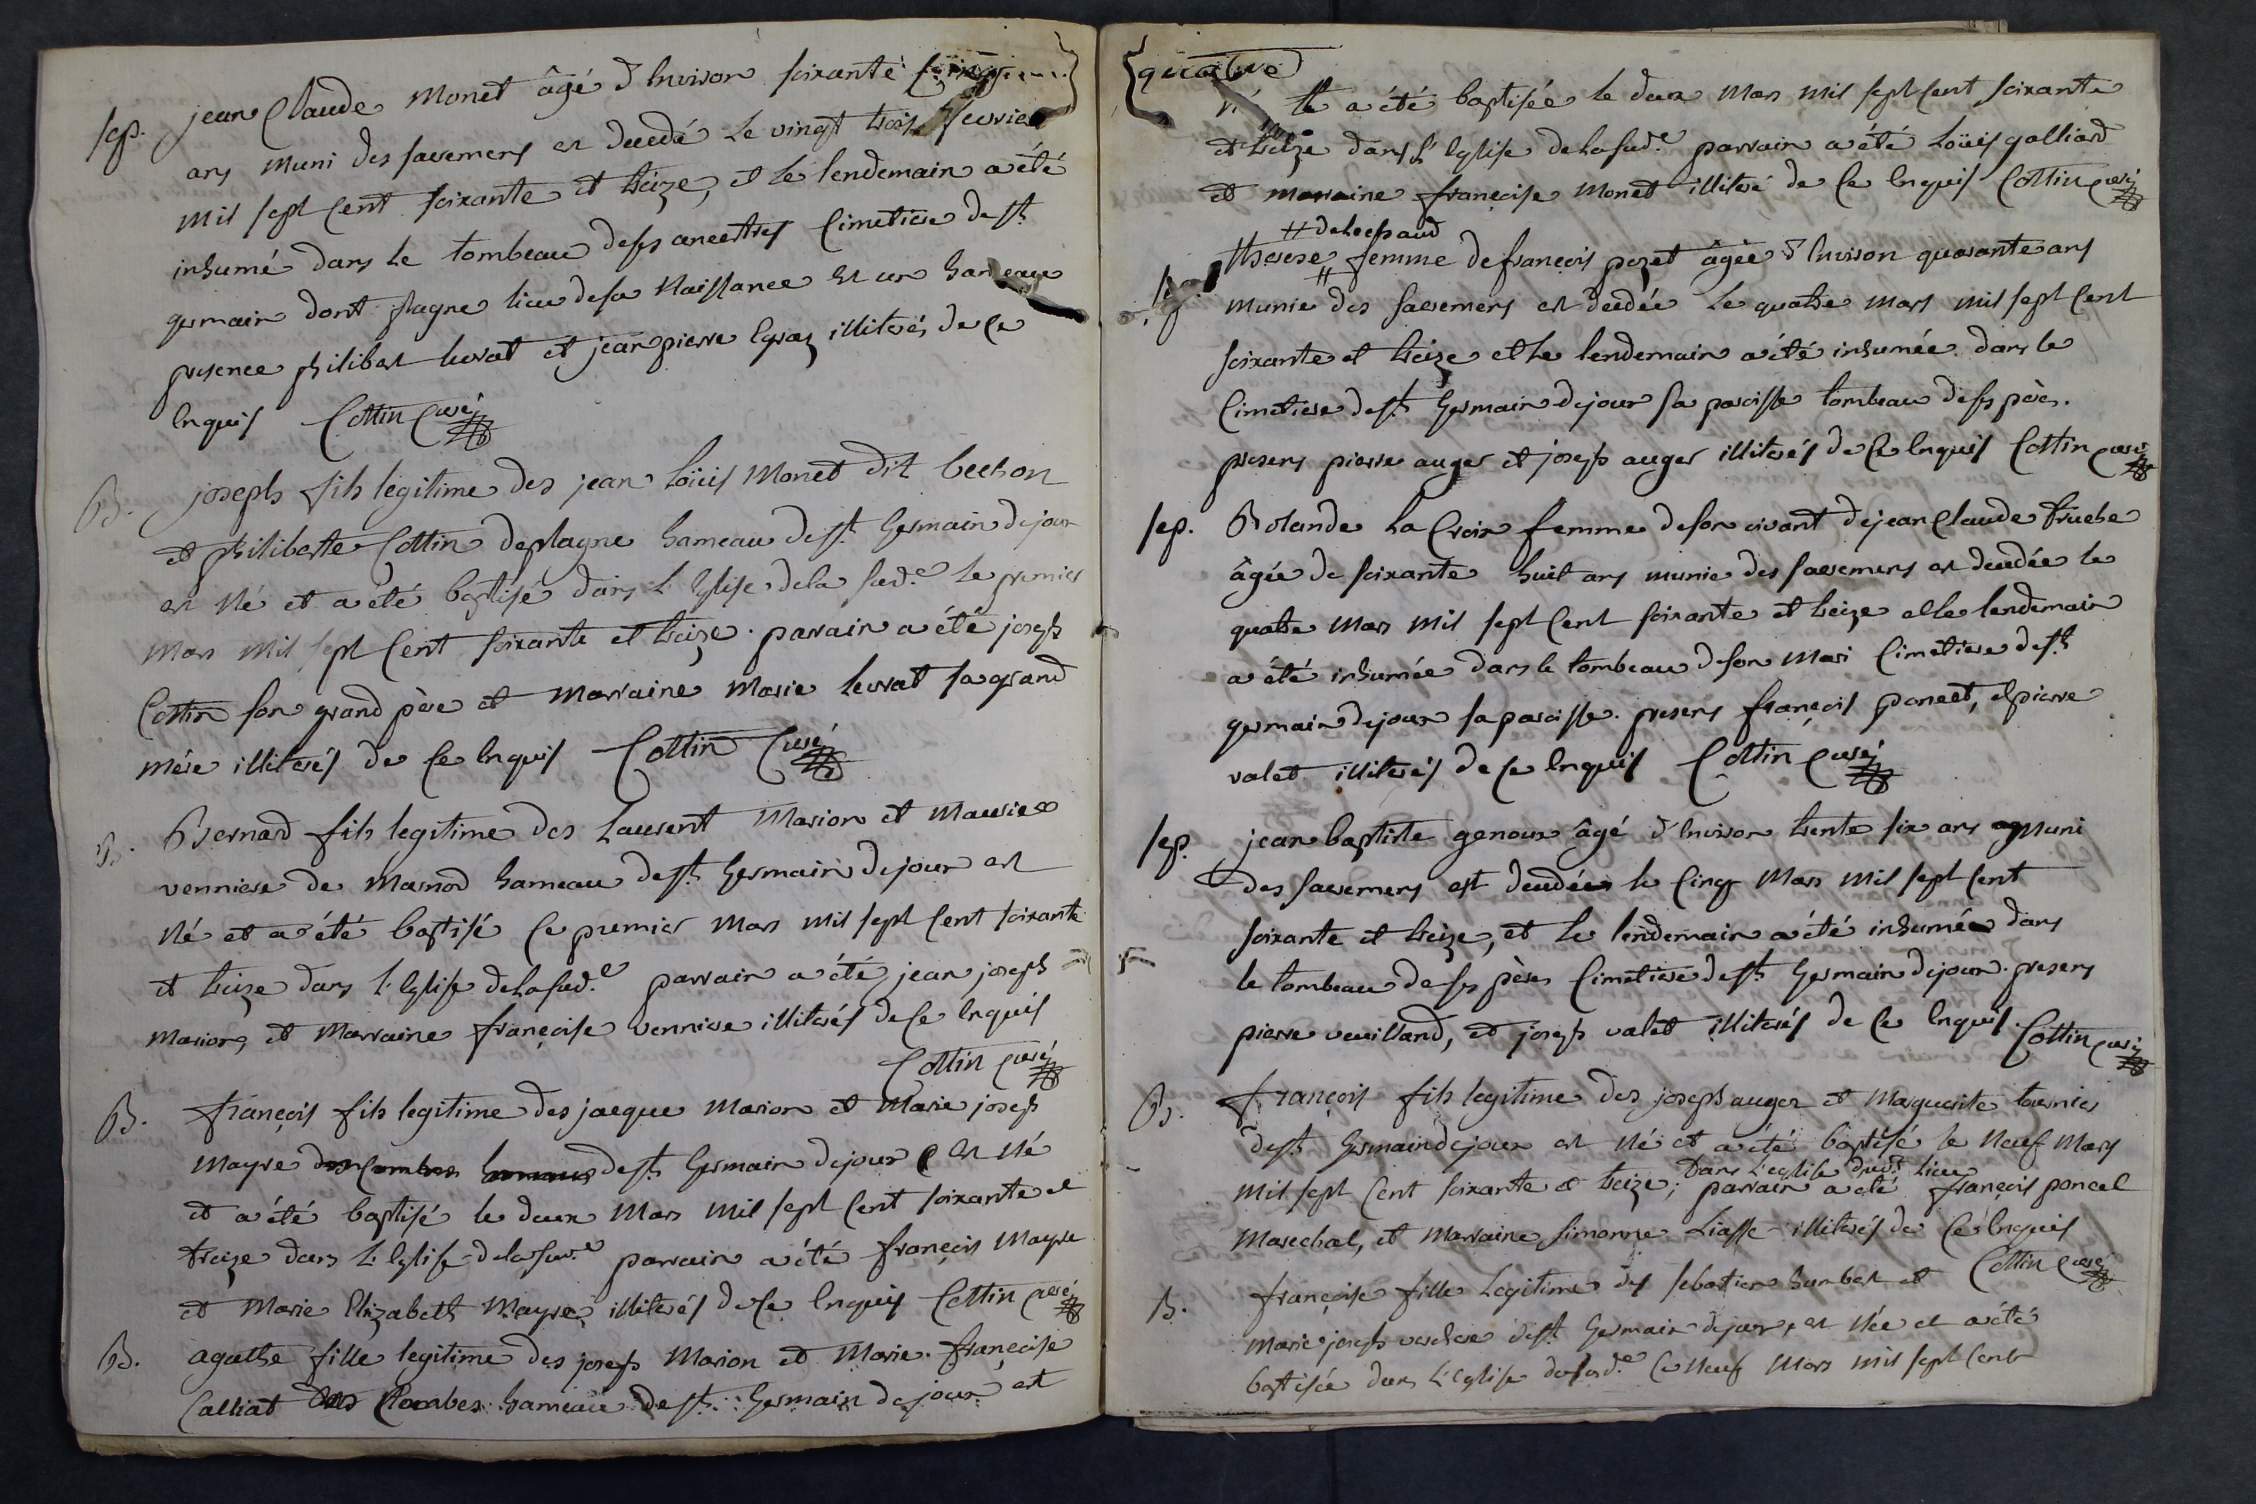 sep. jean Claude Monet âgé d'Environ soixante
ans muni des sacremens est decedé Le vingt trois fevrier
mil sept Cent soixante et treize, et Le lendemain a été
inhumé dans Le tombeau de ses ancestres Cimetiere de st
germain dont plagne lieu de sa Naissance est un hameau
presence philibert levrat et jean pierre Egraz illiterés, de Ce
Enquis Cottin Curé
B. joseph fils legitime des jean Loüis Monet dit bechon
et philiberte Cottin de plagne hameau de st Germain de joux
est Né et a été baptisé dans L'Eglise de la sud.e le premier
Mars mil sept Cent soixante et treize. parrain a été joseph
Cottin son grand père et Marraine Marie levrat sa grand
mère illiterés de Ce Enquis Cottin Curé
B. Bernard fils legitime des Laurent Marion et Maurise
venniere de Marnod hameau de st Germain de joux est
Né et a été baptisé Ce premier Mars mil sept Cent soixante
et treize dans L'Eglise de la sud.e parrain a été jean joseph
Marion, et Marraine françoise venniere illiterés de Ce Enquis
Cottin Curé
B. françois fils legitime des jacque Marion et Marie joseph
Mayre des Combes hameau de st Germain de joux est Né
et a été baptisé le deux Mars mil sept Cent soixante et
treize dans L'Eglise de la sud.e parrain a été françois Mayre
et Marie Elizabeth Mayre, illiterés de Ce Enquis Cottin Curé
B. agathe fille legitime des joseph Marion et Marie françoise
Calliat des Combes hameau de st Germain de joux est
quatre
née et a été baptisée le deux Mars mil sept Cent soixante
et treize dans L'Eglise de la sud.e parrain a été Loüis galliard
et marraine françoise Monet illiteré de Ce Enquis Cottin Curé
# delaissaud
sep. Therese # femme de françois pozet âgée d'Environ quarante ans
munie des sacremens est decedée Le quatre mars mil sept Cent
soixante et treize et Le lendemain a été inhumée dans le
Cimetiere de st Germain de joux sa paroisse tombeau de ses pères.
presens pierre auger et joseph auger illiterés de Ce Enquis Cottin Curé
sep. Rolande La Croix femme de son vivant de jean Claude truche
âgée de soixante huit ans munie des sacremens est decedée le
quatre Mars mil sept Cent soixante et treize et le lendemain
a été inhumée dans le tombeau de son Mari Cimetiere de st
germain de joux sa paroisse. presens françois poncet, et pierre
valet illiterés de Ce Enquis Cottin Curé
sep. jean baptiste genoux âgé d'Environ trente six ans muni
des sacremens est decedé le Cinq Mars mil sept Cent
soixante et treize, et Le lendemain a été inhumé dans
le tombeau de ses pères Cimetiere de st Germain de joux. presens
pierre veuilland, et joseph valet illiterés de Ce Enquis. Cottin Curé
B. françois fils legitime des joseph auger et Marguerite tournier
de st Germain de joux est Né et a été baptisé le Neuf Mars
dans L'eglise dud.t Lieu
mil sept Cent soixante et treize; parrain a été françois poncet
Marechal, et Marraine simonne Liasse illiterés de Ce Enquis
Cottin Curé
B. françoise fille Legitime des sebastien humbert et
Marie joseph verchere de st Germain de joux, est Née et a été
baptisée dans L'Eglise du sud.e Ce Neuf Mars mil sept Cent